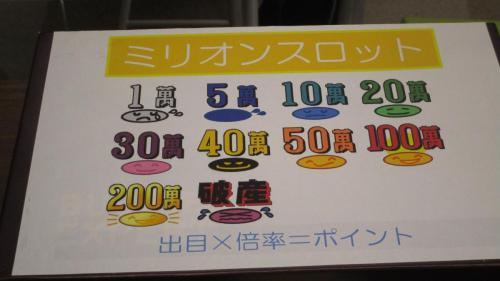 ミリオンスロット
1萬 5萬 10萬 20萬
30萬 40萬 50萬 100萬
200萬 破産
出目×倍率=ポイント